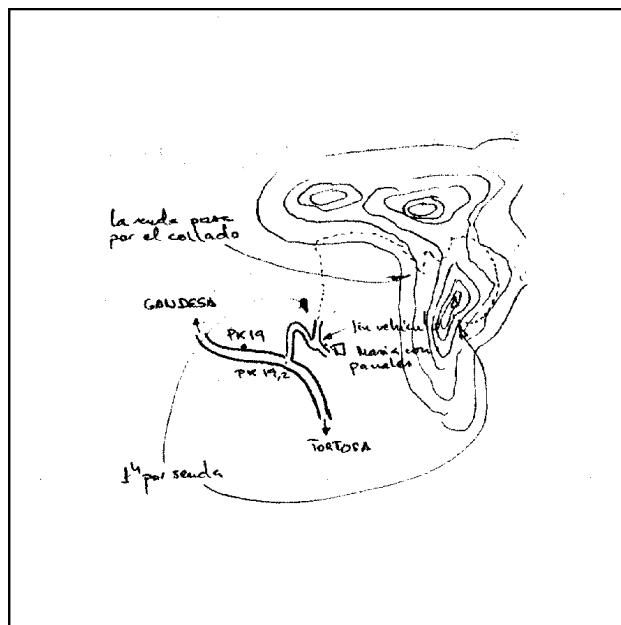 la senda pasa
por el collado
GANDESA
PK 19
PK 19,2
fin vehiculo
Masia con
panales
TORTOSA
1h por senda